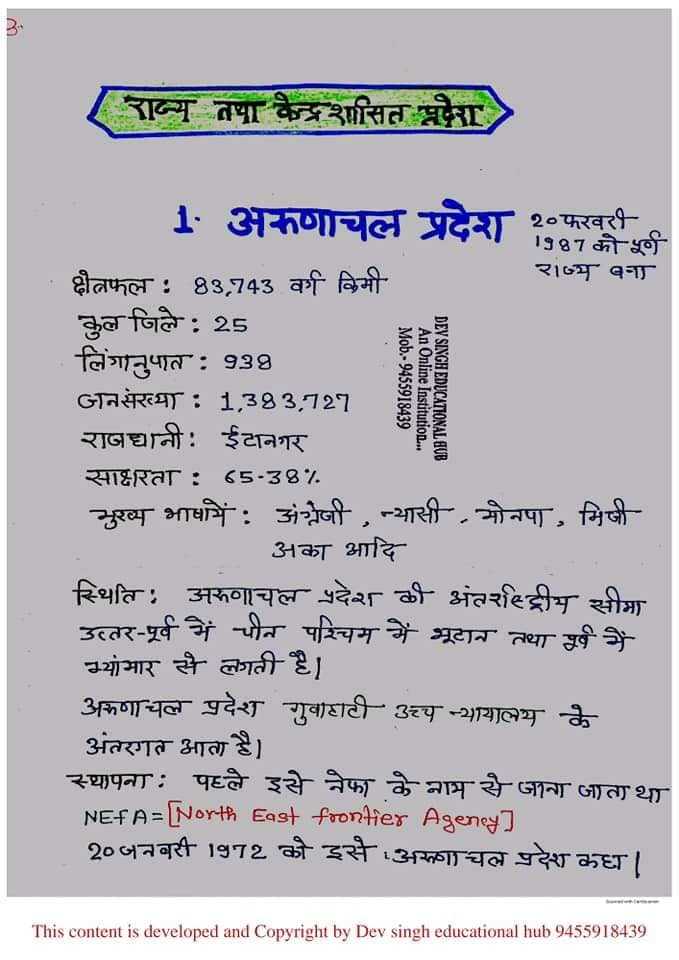 3.
राज्य तथा केन्द्रशासित प्रदेश
1. अरूणाचल प्रदेश
20 फरवरी
1987 को पूर्ण
राज्य बना
क्षेत्रफल : 83,743 वर्ग किमी
कुल जिले : 25
लिंगानुपात : 938
जनसंख्या : 1,383,727
राजधानी : ईटानगर
साक्षरता : 65.38%
मुख्य भाषायें : अंग्रेजी , न्यासी , मोनपा , मिषी
अका आदि
DEV SINGH EDUCATIONAL HUB
An Online Institution...
Mob.- 9455918439
स्थिति : अरूणाचल प्रदेश की अंतर्राष्ट्रीय सीमा
उत्तर-पूर्व में चीन पश्चिम में भूटान तथा पूर्व में
म्यांमार से लगती है।
अरूणाचल प्रदेश गुवाहाटी उच्च न्यायालय के
अंतरगत आता है।
स्थापना : पहले इसे नेफा के नाम से जाना जाता था
NEFA = [North East frontier Agency]
20 जनवरी 1972 को इसे अरूणाचल प्रदेश कहा।
Scanned with CamScanner
This content is developed and Copyright by Dev singh educational hub 9455918439